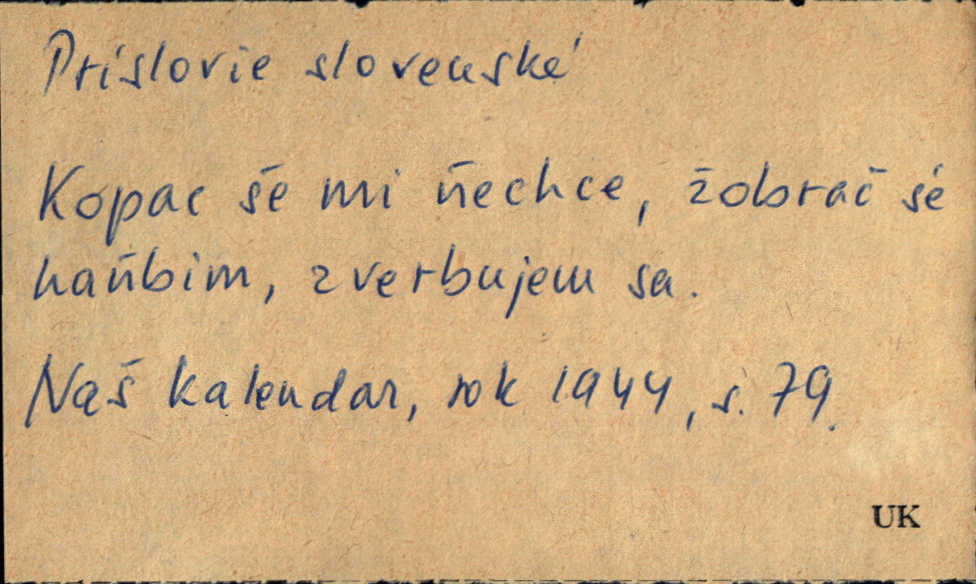 Príslovie slovenské
Kopac še mi ňechce, žobrač śe
haňbim, zverbujem sa.
Naš kalendar, rok 1944, s. 79.
UK